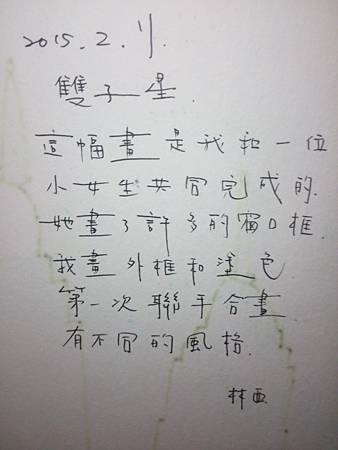 2015.2.11.
雙子星.
這幅畫是我和一位
小女生共同完成的.
她畫了許多的窗口框.
我畫外框和塗色
第一次聯手合畫
有不同的風格.
林西.